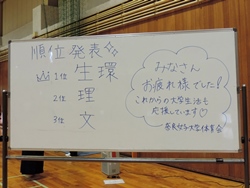 順位発表
1位 生環
2位 理
3位 文
みなさん
お疲れ様でした!
これからの大学生活も
応援しています♡
奈良女子大学体育会